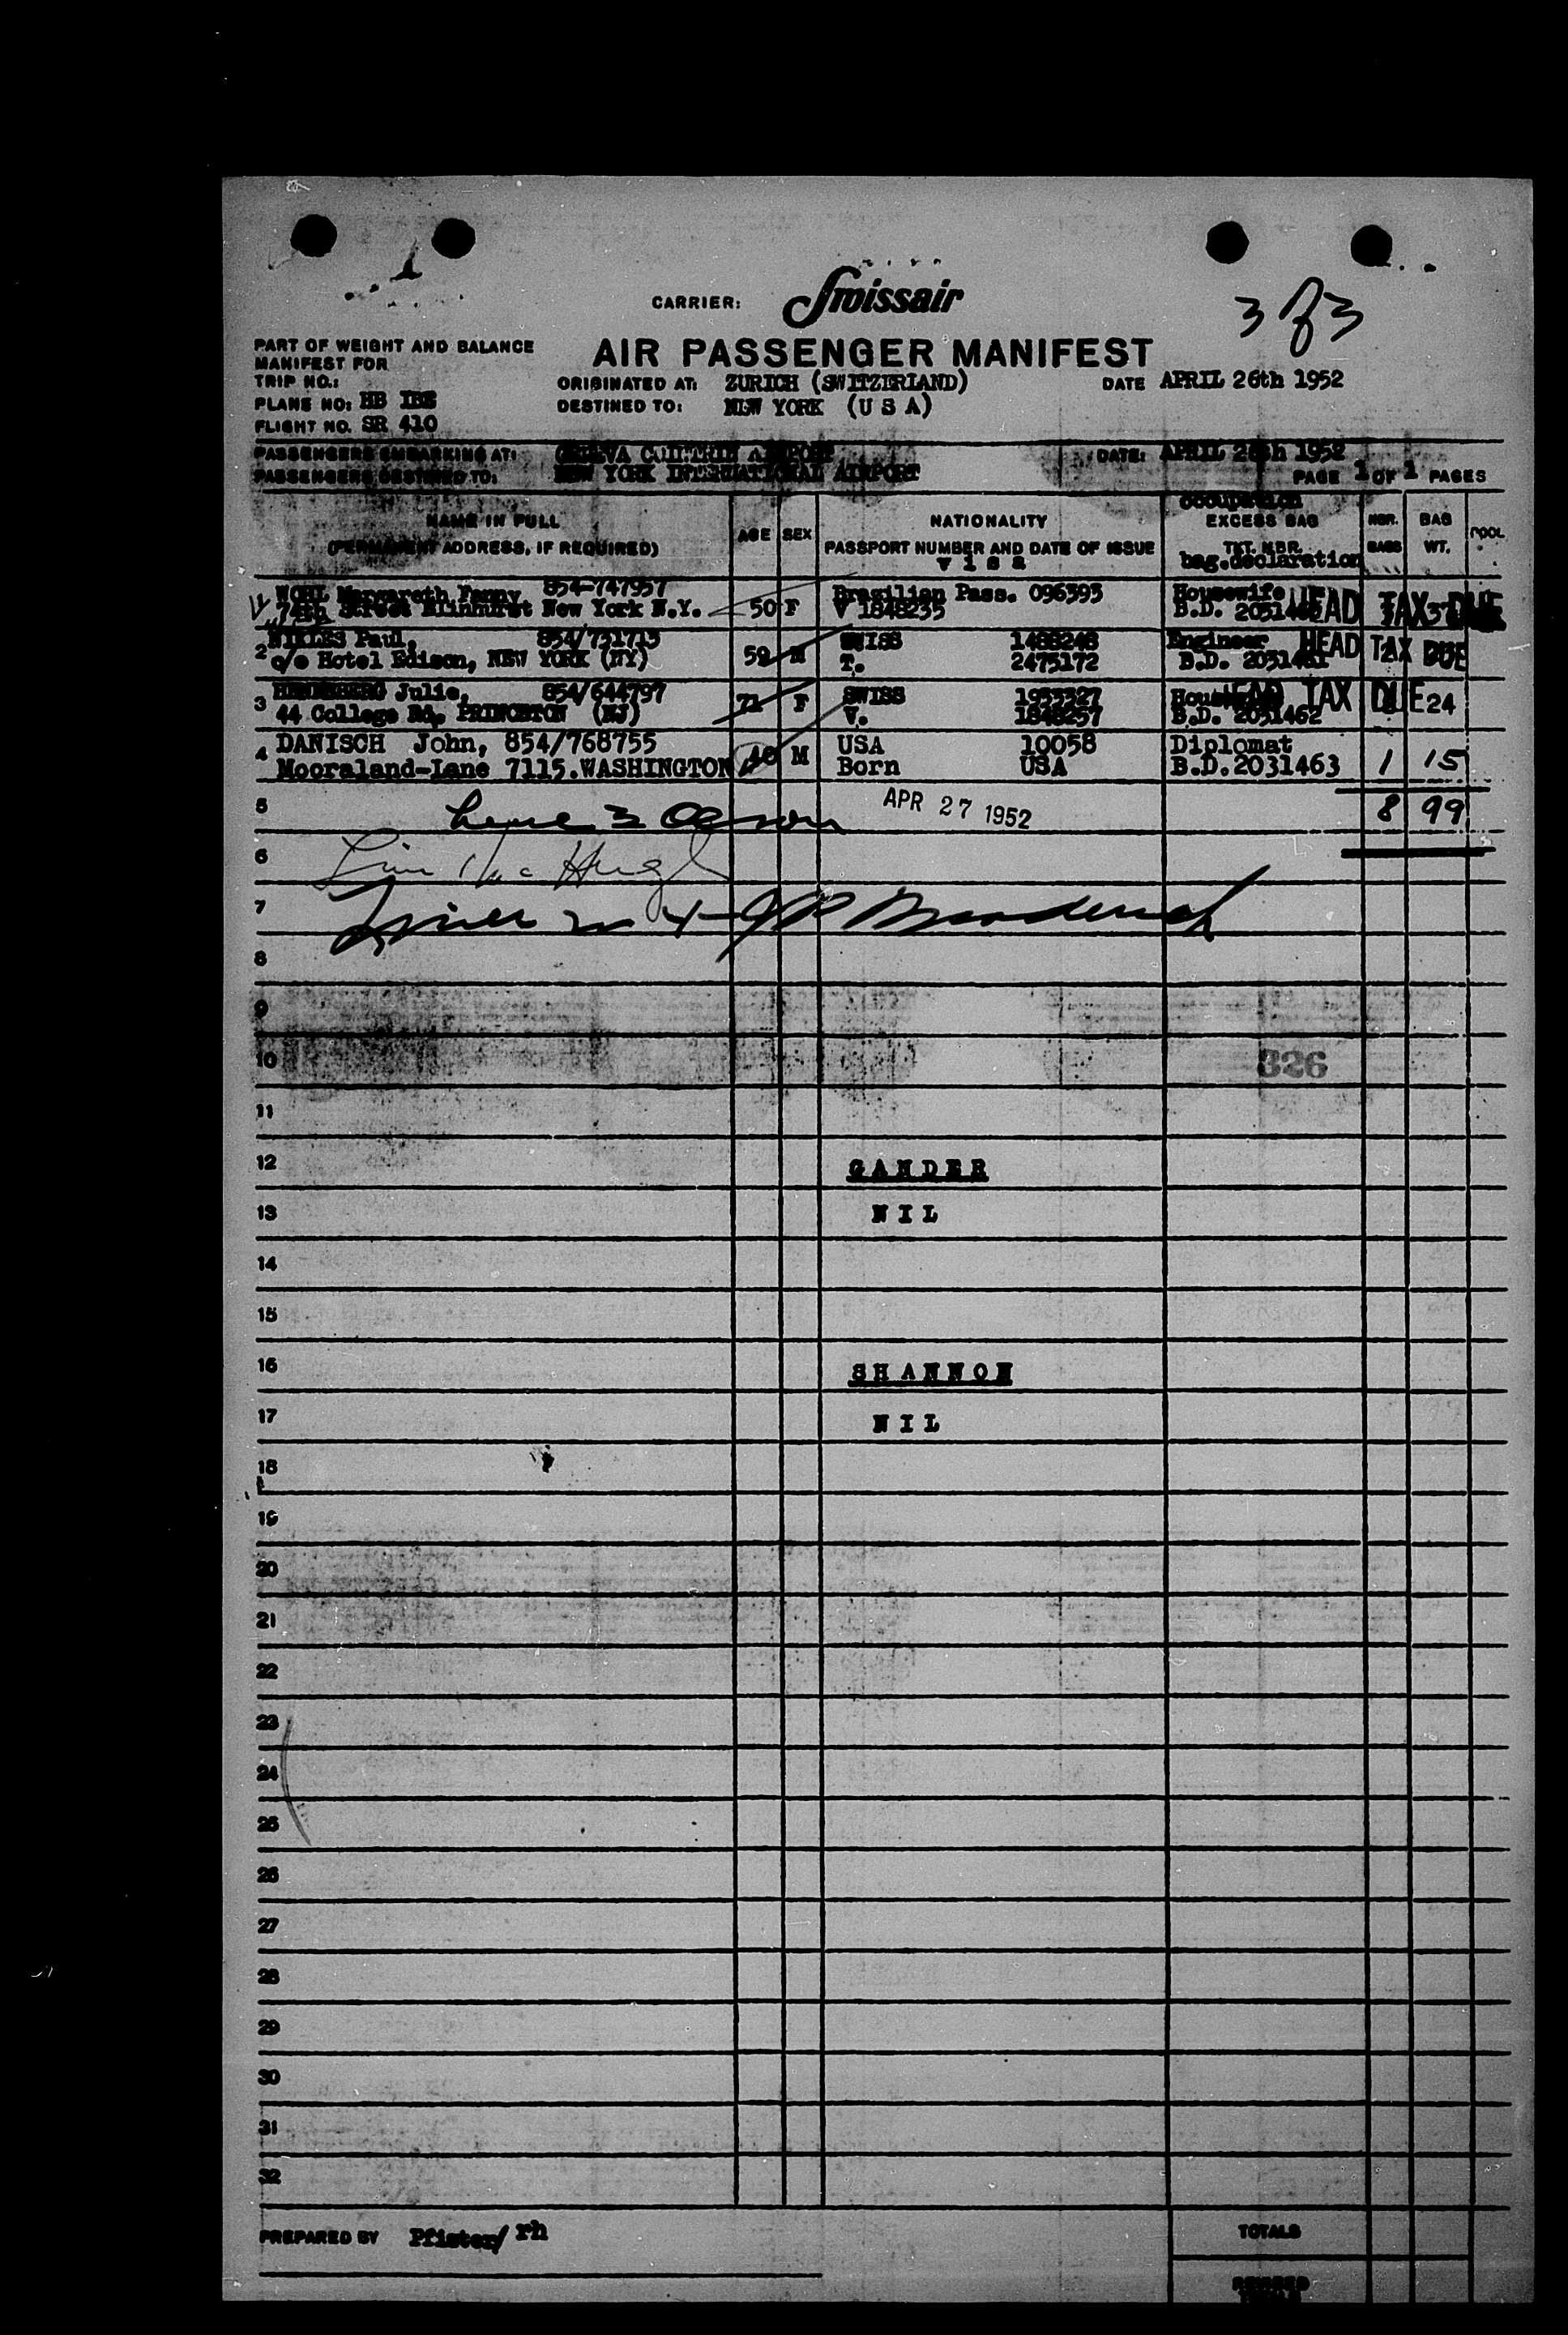 1
CARRIER: Swissair
3 of 3
PART OF WEIGHT AND BALANCE
MANIFEST FOR
AIR PASSENGER MANIFEST
TRIP NO.:
ORIGINATED AT: ZURICH (SWITZERLAND) DATE APRIL 26th 1952
PLANE NO: HB
DESTINED TO: NEW YORK (U S A)
FLIGHT NO. SR 410
PASSENGERS EMBARKING AT: GENEVA COINTRIN AIRPORT DATE: APRIL 26th 1952
PASSENGERS DESTINED TO: NEW YORK INTERNATIONAL AIRPORT PAGE 1 OF 1 PAGES
NAME IN FULL
(PERMANENT ADDRESS, IF REQUIRED)
AGE SEX
NATIONALITY
PASSPORT NUMBER AND DATE OF ISSUE
V i s a
occupation
EXCESS BAG
TKT. NBR.
bag.declaration
NBR.
BAGS
BAG
WT.
POOL
WOHL Margareth Fanny 854-747957 50 F Brazilian Pass. 096393 Housewife HEAD TAX DUE
74th Street Elmhurst New York N.Y. V 1848235 B.D.
2 Paul, 854/731713 59 M SWISS 1488248 Engineer HEAD TAX DUE
c/o Hotel Edison, NEW YORK (NY) T. 2475172 B.D. 2031461
3 Julie, 854/644797 71 F SWISS 1933327 HEAD TAX DUE 24
44 College Rd. PRINCETON (NJ) V. 1848257 B.D. 2031462
4 DANISCH John, 854/768755 40 M USA 10058 Diplomat 1 15
Mooraland-Lane 7115.WASHINGTON Born USA B.D.2031463
5 APR 27 1952 8 99
6
7
8
9
10 326
11
12 GANDER
13 NIL
14
15
16 SHANNON
17 NIL
18
19
20
21
22
23
24
25
26
27
28
29
30
31
32
PREPARED BY Pfister/ rh
TOTALS